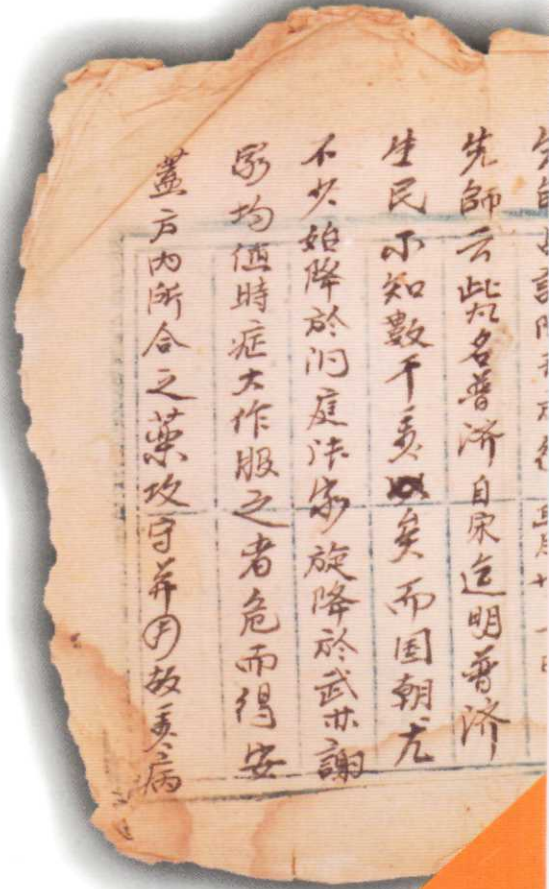 先師云此丸名普濟自宋迄明普濟
生民不知數千萬矣而国朝尤
不少始降於洞庭家旋降於武林謝
家均值時症大作服之者危而得安
蓋方内所合之藥攻守並用故萬病